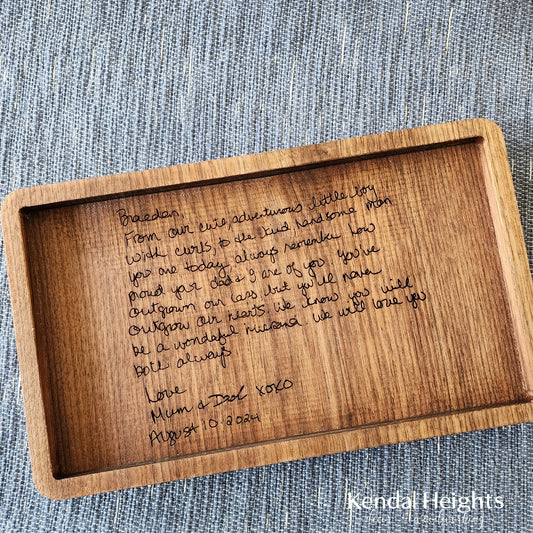 Braedan,
From our cute, adventurous little boy
with curls, to the kind, handsome man
you are today always remember how
proud your dad & I are of you. You've
outgrown our laps, but you'll never
outgrow our hearts. We know you will
be a wonderful husband. We will love you
both always.
Love
Mum & Dad xoxo
August 10. 2024
Kendal Heights